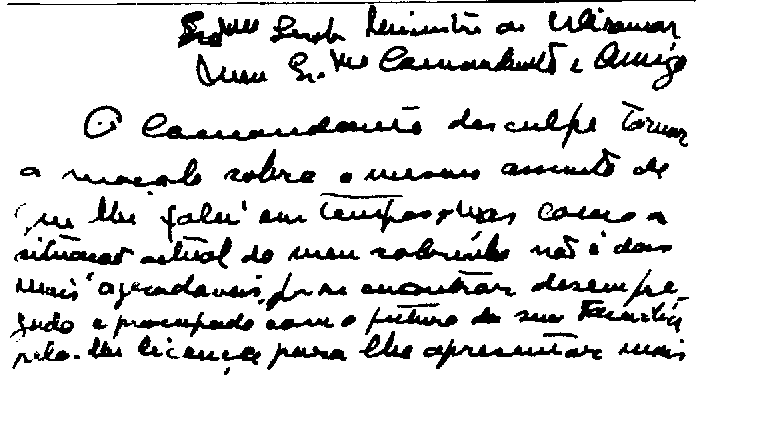 Exmo Senhor Ministro do Ultramar
Meu Exmo Comandante e Amigo
O Comandante desculpe tornar
a maçalo sobre o mesmo assunto de
que lhe falei em tempos, mas como a
situacao actual do meu sobrinho não é das
mais agradaveis, por se encontrar desempre
gado e preocupado com o futuro da sua Familia
peço-lhe licença para lhe apresentar mais